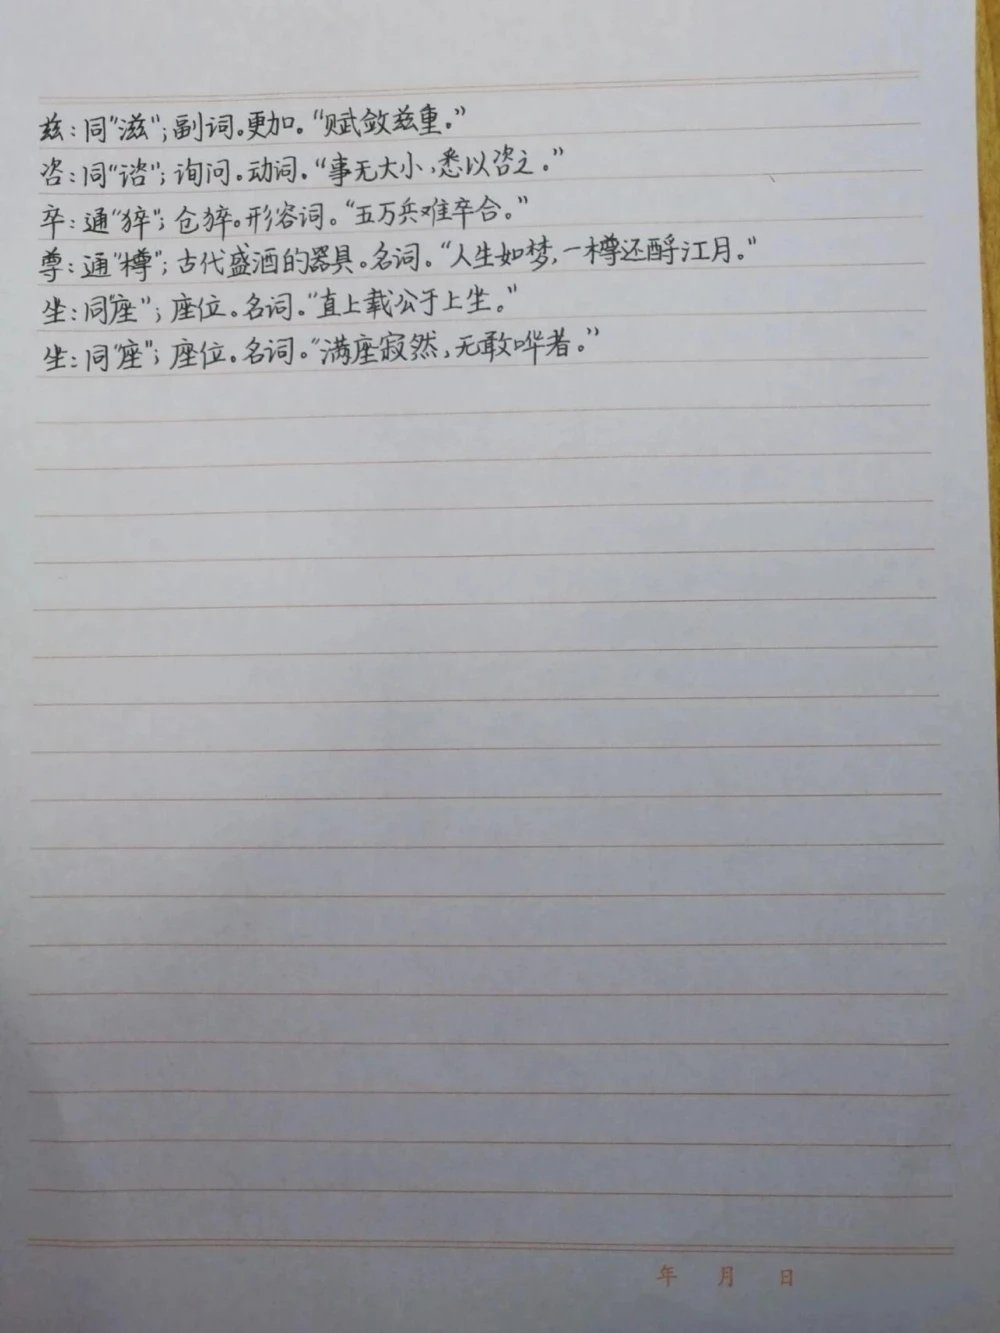 兹：同“滋”；副词。更加。“赋敛兹重。”
咨：同“谘”；询问。动词。“事无大小，悉以咨之。”
卒：通“猝”；仓猝。形容词。“五万兵难卒合。”
尊：通“樽”；古代盛酒的器具。名词。“人生如梦，一樽还酹江月。”
坐：同“座”；座位。名词。“直上载公子上坐。”
坐：同“座”；座位。名词。“满座寂然，无敢哗者。”
年 月 日